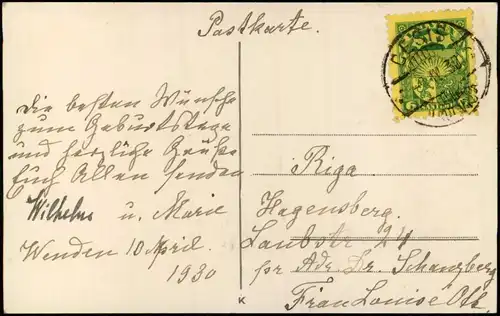 Postkarte.
CĒSIS
Die besten Wünsche
zum Geburtstage
und herzliche Grüße
Euch Allen senden
Wilhelm u. Marie
Wenden 10 April.
1930
Riga
Hagensberg.
Laubstr 24
pr Adr. Dr. Schanzberg
Frau Louise Ott.
K